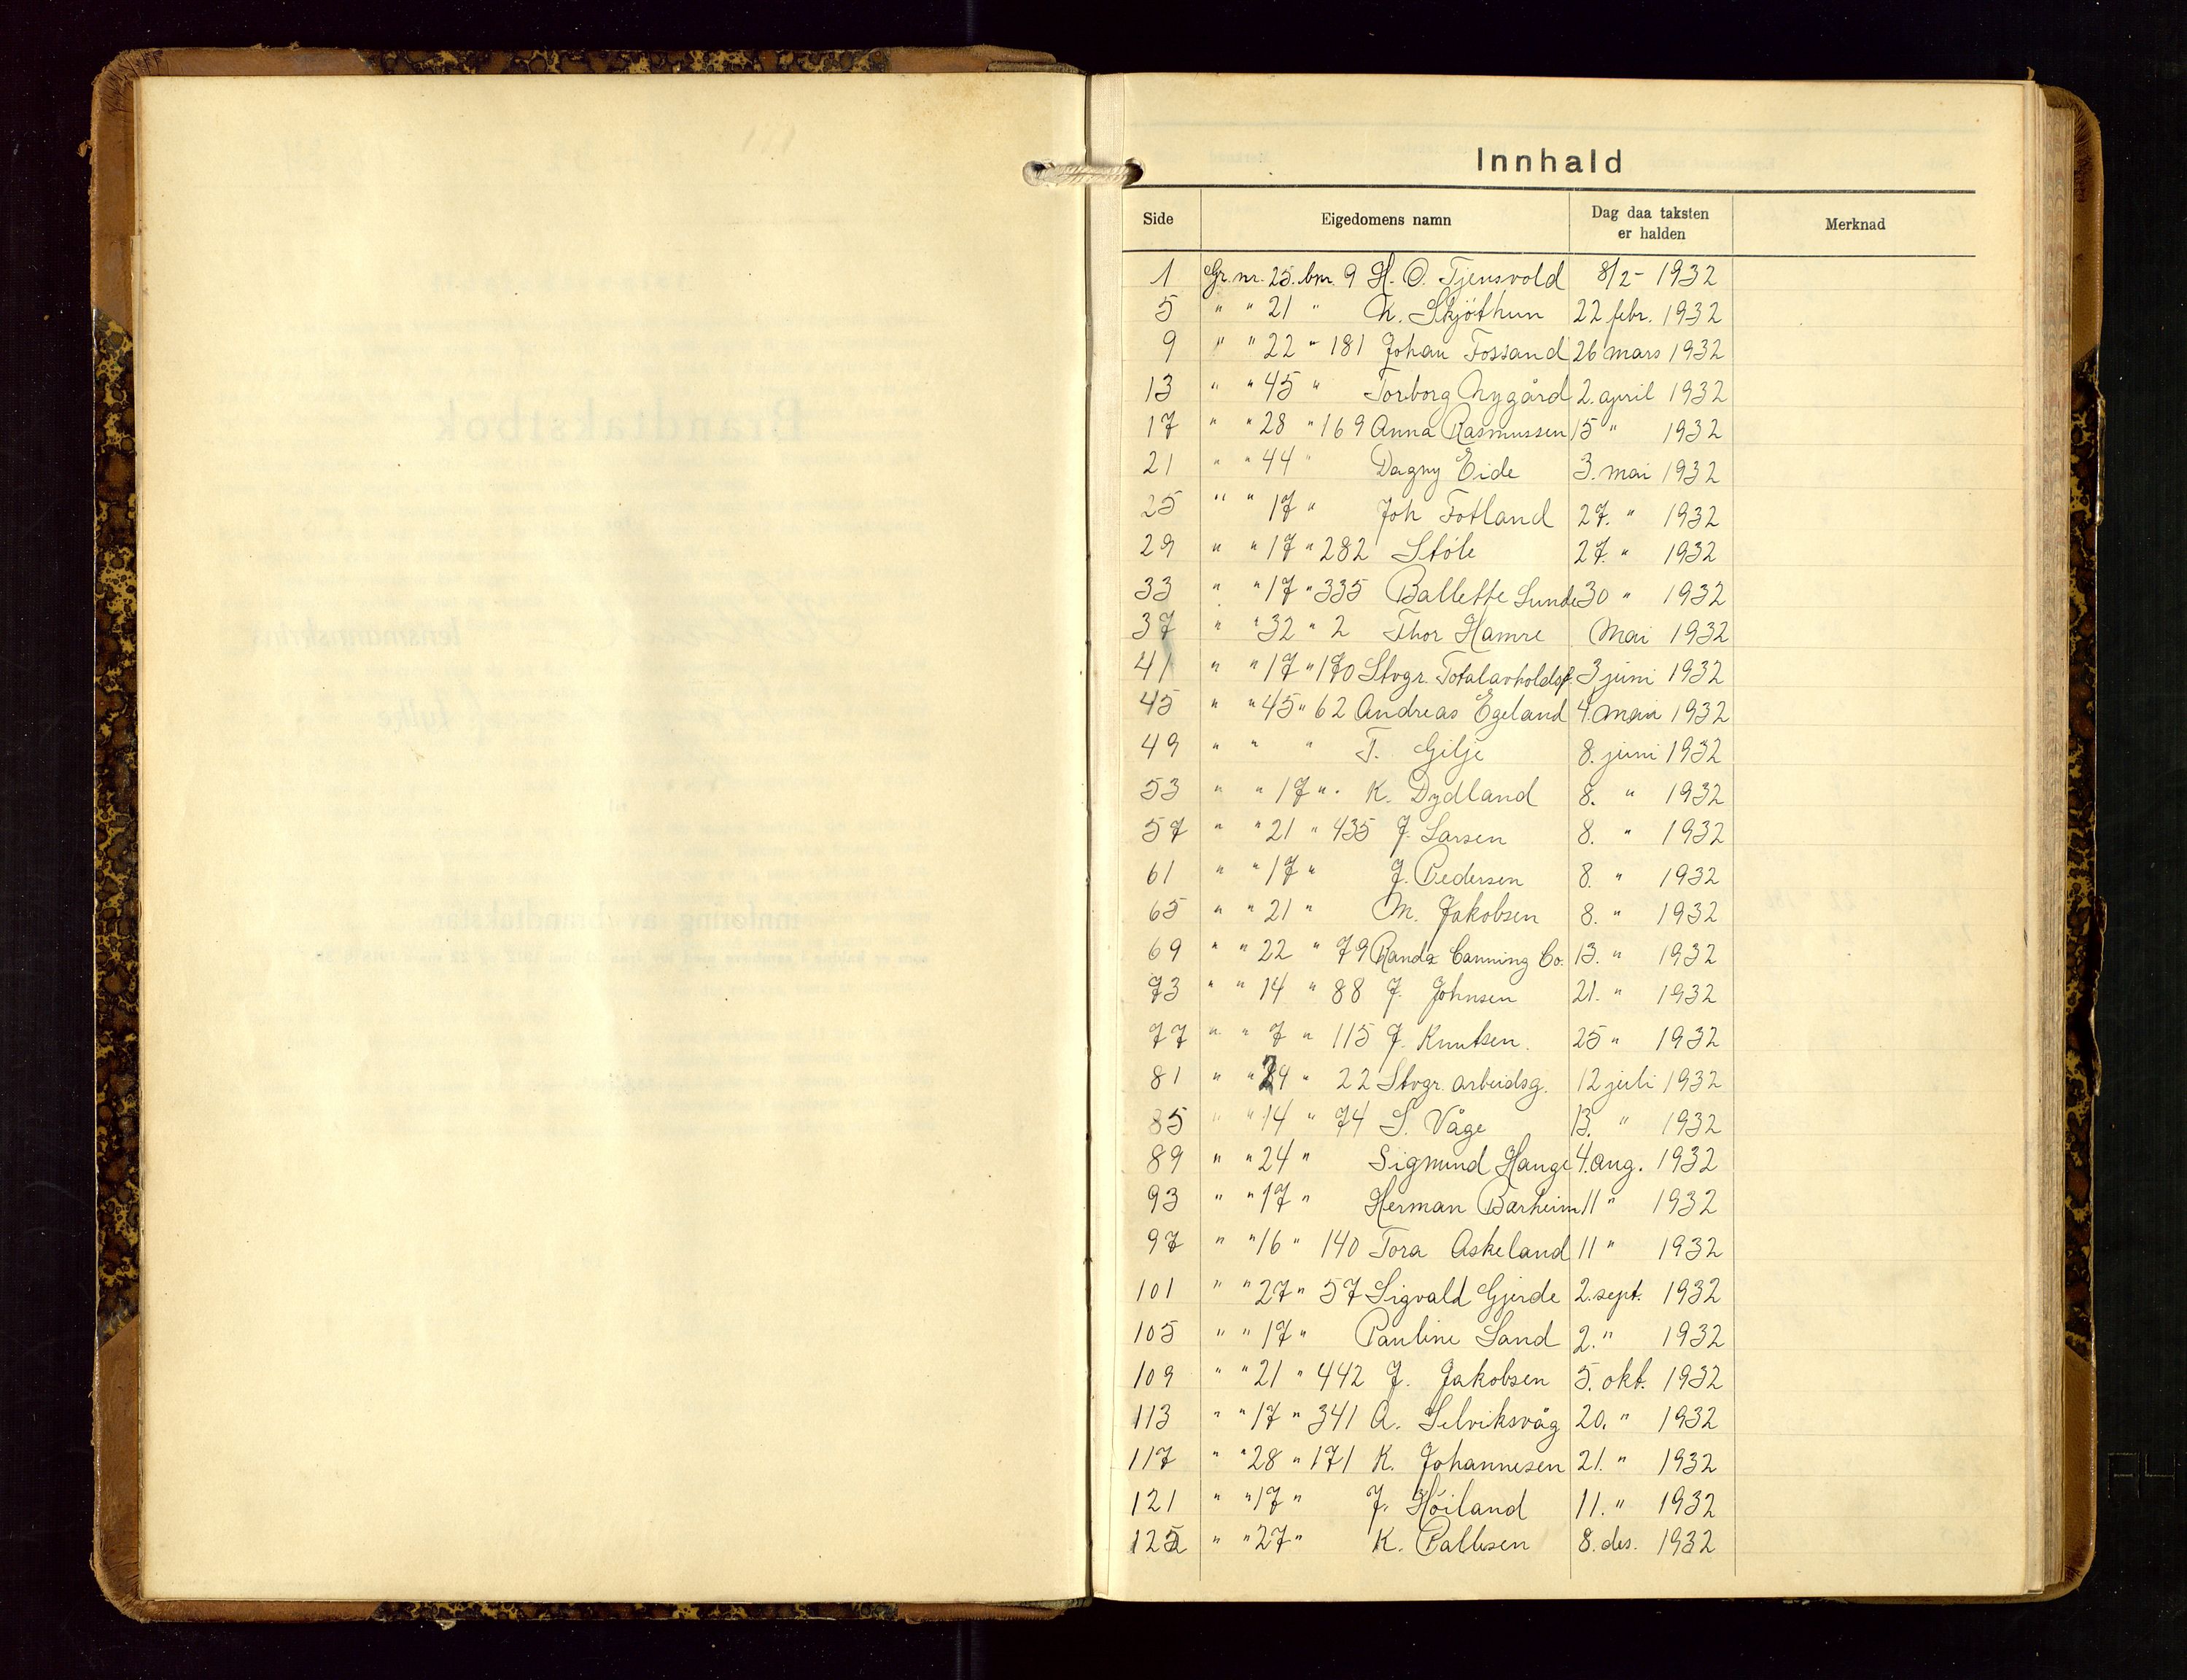 Innhald
Side Eigedomens namn Dag daa taksten er halden Merknad
1 Gr. nr. 25. bnr. 9 H. O. Tjensvold 8/2 - 1932
5 " " 21 " K. Skjöthun 22 febr. 1932
9 " " 22 " 181 Johan Fossand 26 mars 1932
13 " " 45 " Torborg Nygård 2. april 1932
17 " " 28 " 169 Anna Rasmussen 15 " 1932
21 " " 44 " Dagny Eide 3. mai 1932
25 " " 17 " Joh Fotland 27. " 1932
29 " " 17 " 282 Støle 27. " 1932
33 " " 17 " 335 Ballette Lunde 30 " 1932
37 " " 32 " 2 Thor Hamre Mai 1932
41 " " 17 " 170 Stvgr. Totalavholdsf. 3 juni 1932
45 " " 45 " 62 Andreas Egeland 4. mai 1932
49 " " " T. Gilje 8. juni 1932
53 " " 17 " " K. Dydland 8. " 1932
57 " " 21 " 435 J. Larsen 8. " 1932
61 " " 17 " J. Pedersen 8. " 1932
65 " " 21 " M. Jakobsen 8. " 1932
69 " " 22 " 79 Randa Canning Co. 13. " 1932
73 " " 14 " 88 J. Johnsen 21. " 1932
77 " " 7 " 115 J. Knutsen. 25 " 1932
81 " " 24 " 22 Stvgr. arbeidsg. 12 juli 1932
85 " " 14 " 74 S. Våge 13. " 1932
89 " " 24 " Sigmund Hauge 4. aug. 1932
93 " " 17 " Herman Barheim 11 " 1932
97 " " 16 " 140 Tora Askeland 11 " 1932
101 " " 27 " 57 Sigvald Gjerde 2. sept. 1932
105 " " 17 " Pauline Sand 2. " 1932
109 " " 21 " 442 J. Jakobsen 5. okt. 1932
113 " " 17 " 341 A. Selviksvåg 20. " 1932
117 " " 28 " 171 K. Johannesen 21. " 1932
121 " " 17 " J. Höiland 11. " 1932
125 " " 27 " K. Pallesen 8. des. 1932